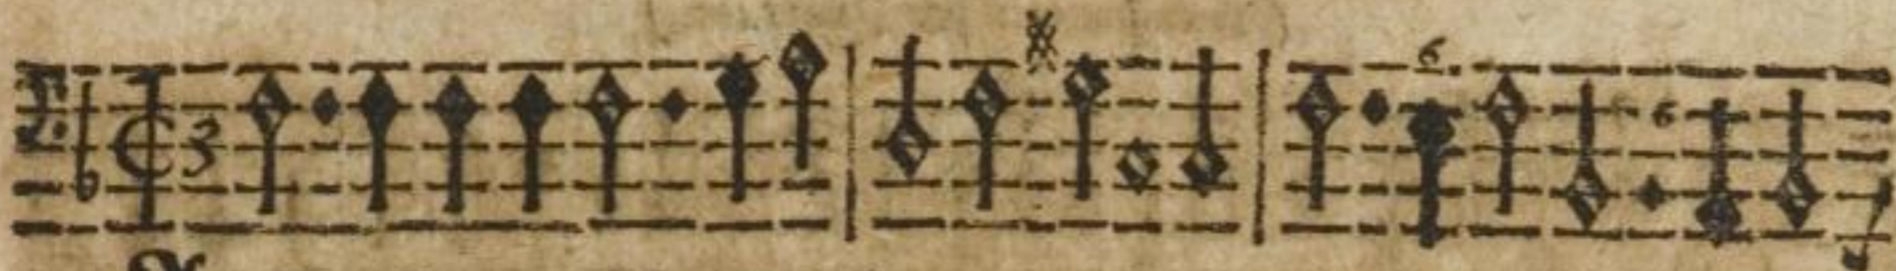 3
6
6